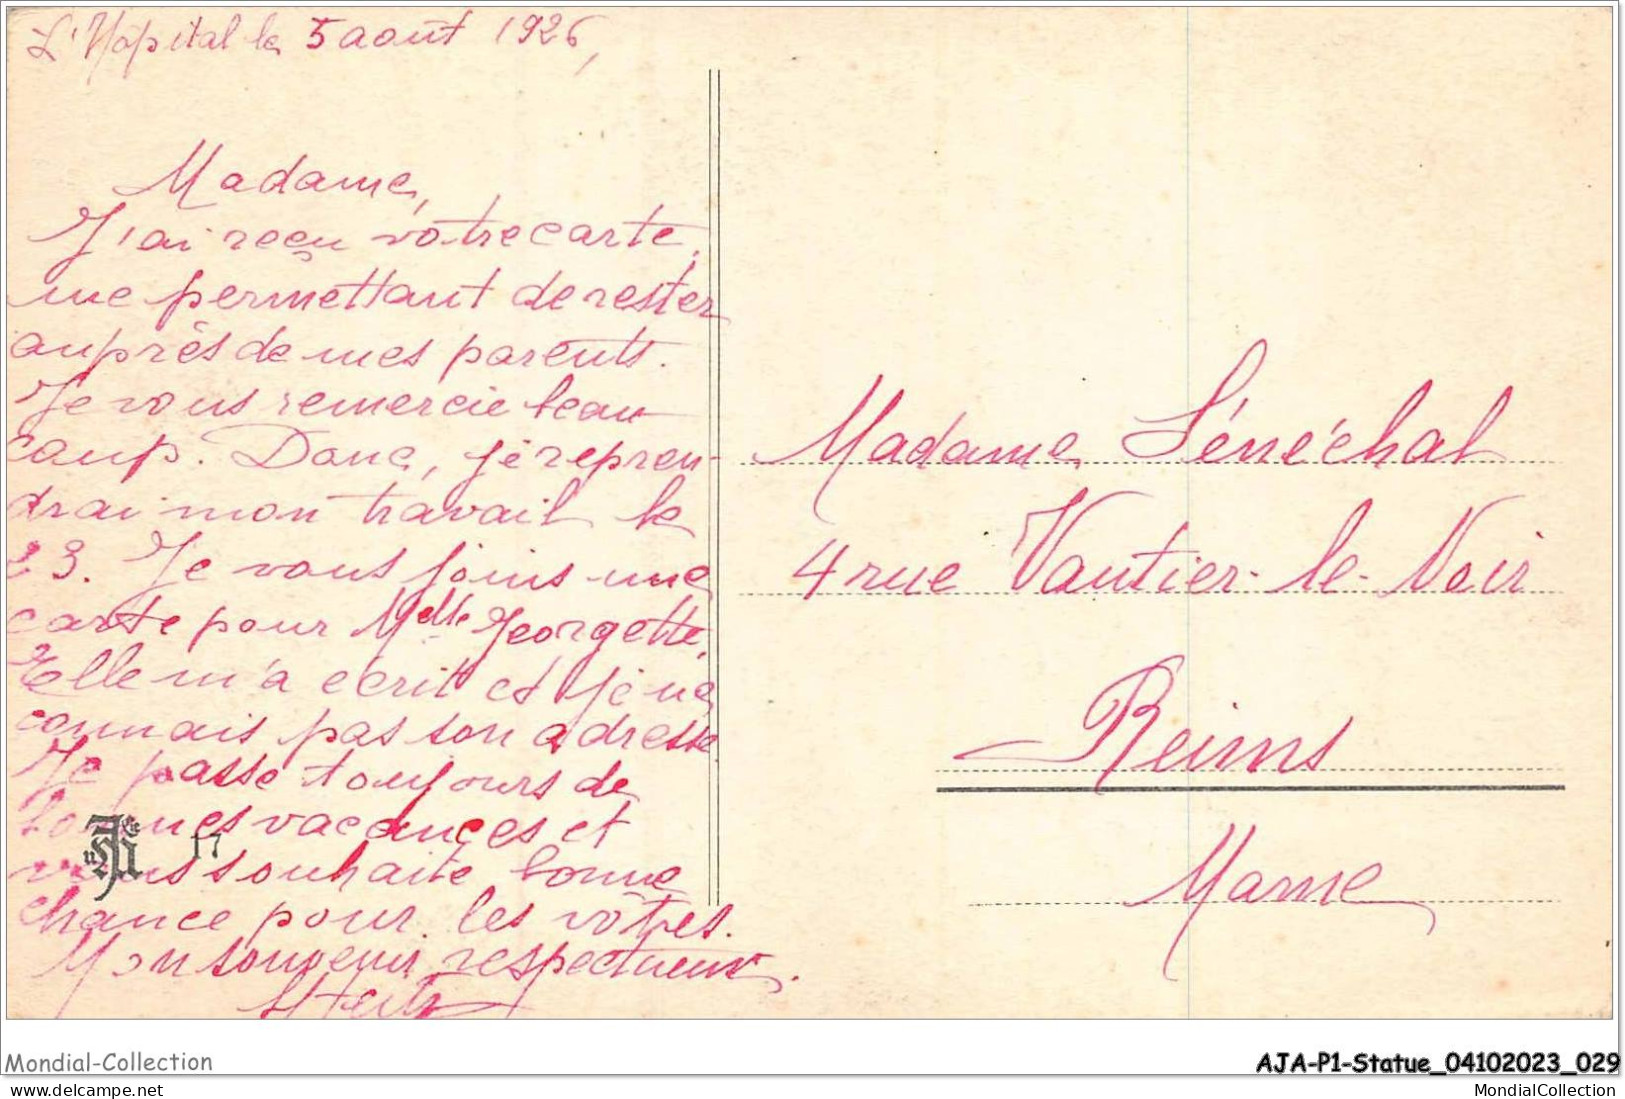 L'Hôpital le 5 août 1926,
Madame,
J'ai reçu votre carte,
me permettant de rester
auprès de mes parents.
Je vous remercie beau
coup. Donc, je repren-
drai mon travail le
23. Je vous joins une
carte pour Melle Georgette,
Elle m'a écrit et je ne
connais pas son adresse
Je passe toujours de
bonnes vacances et
vous souhaite bonne
chance pour les vôtres.
Mon souvenir respectueux.
17
Madame Sénéchal
4 rue Vautier-le-Noir
Reims
Marne
Mondial-Collection
AJA-P1-Statue_04102023_029
delcampe.net
MondialCollection